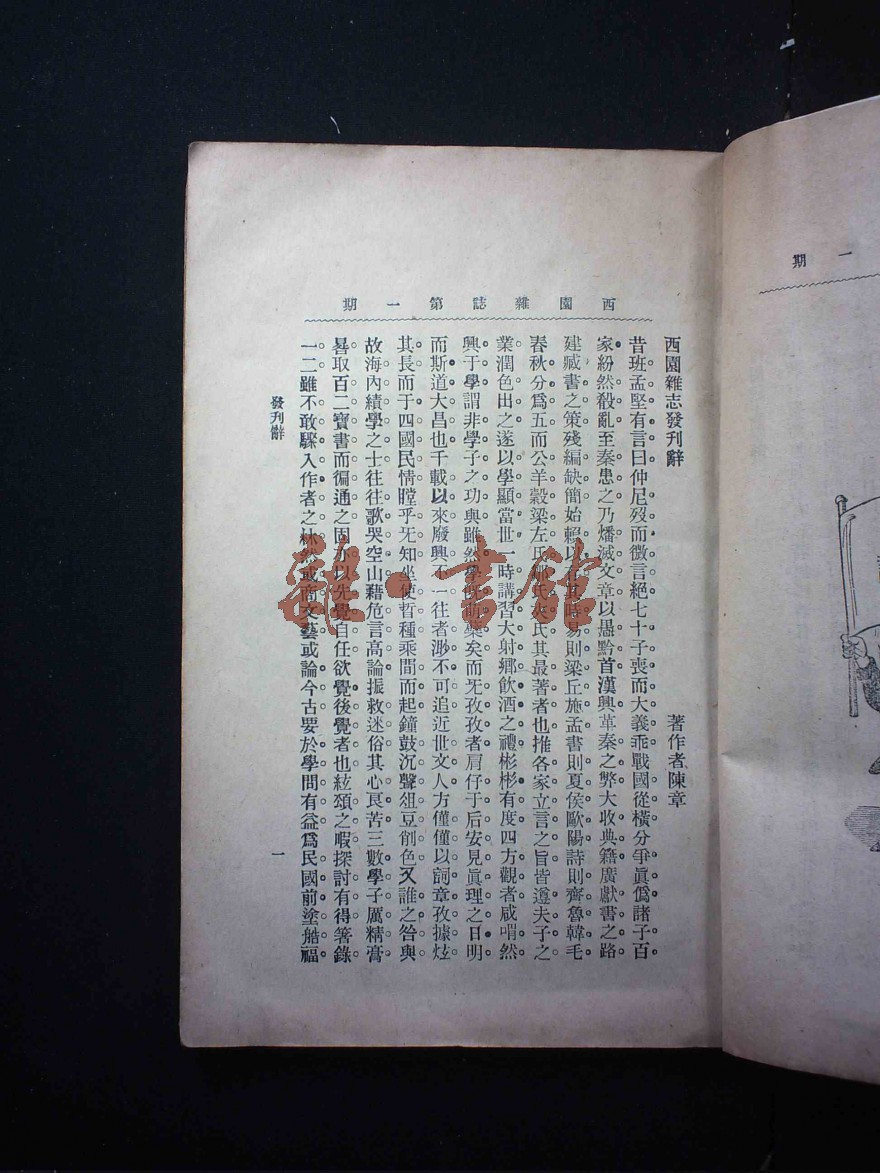 西園雜誌第一期
西園雜志發刊辭
著作者陳章
昔班孟堅有言曰仲尼歿而微言絕七十子喪而大義乖戰國從橫分爭眞僞諸子百
家紛然殽亂至秦患之乃燔滅文章以愚黔首漢興革秦之弊大收典籍廣獻書之路
建臧書之策殘編缺簡始賴以存其時易則梁丘施孟書則夏侯歐陽詩則齊魯韓毛
春秋分爲五而公羊穀梁左氏鄒氏夾氏其最著者也推各家立言之旨皆遵夫子之
業潤色出之遂以學顯當世一時講習大射鄉飲酒之禮彬彬有度四方觀者咸喟然
興于學謂非學子之功與雖然學矣而旡孜孜者肩仔于后安見眞理之日明
而斯道大昌也千載以來廢興不一往者渺不可追近世文人方僅僅以詞章攷據炫
其長而于四國民情瞠乎旡知坐使哲種乘間而起鐘鼓沉聲俎豆削色又誰之咎與
故海內績學之士往往歌哭空山藉危言高論振救迷俗其心良苦三數學子厲精膏
晷取百二寶書而徧通之固亦以先覺自任欲覺後覺者也絃頌之暇探討有得箸錄
一二雖不敢驟入作者之林然或商文藝或論今古要於學問有益爲民國前塗福
發刊辭
一
一期